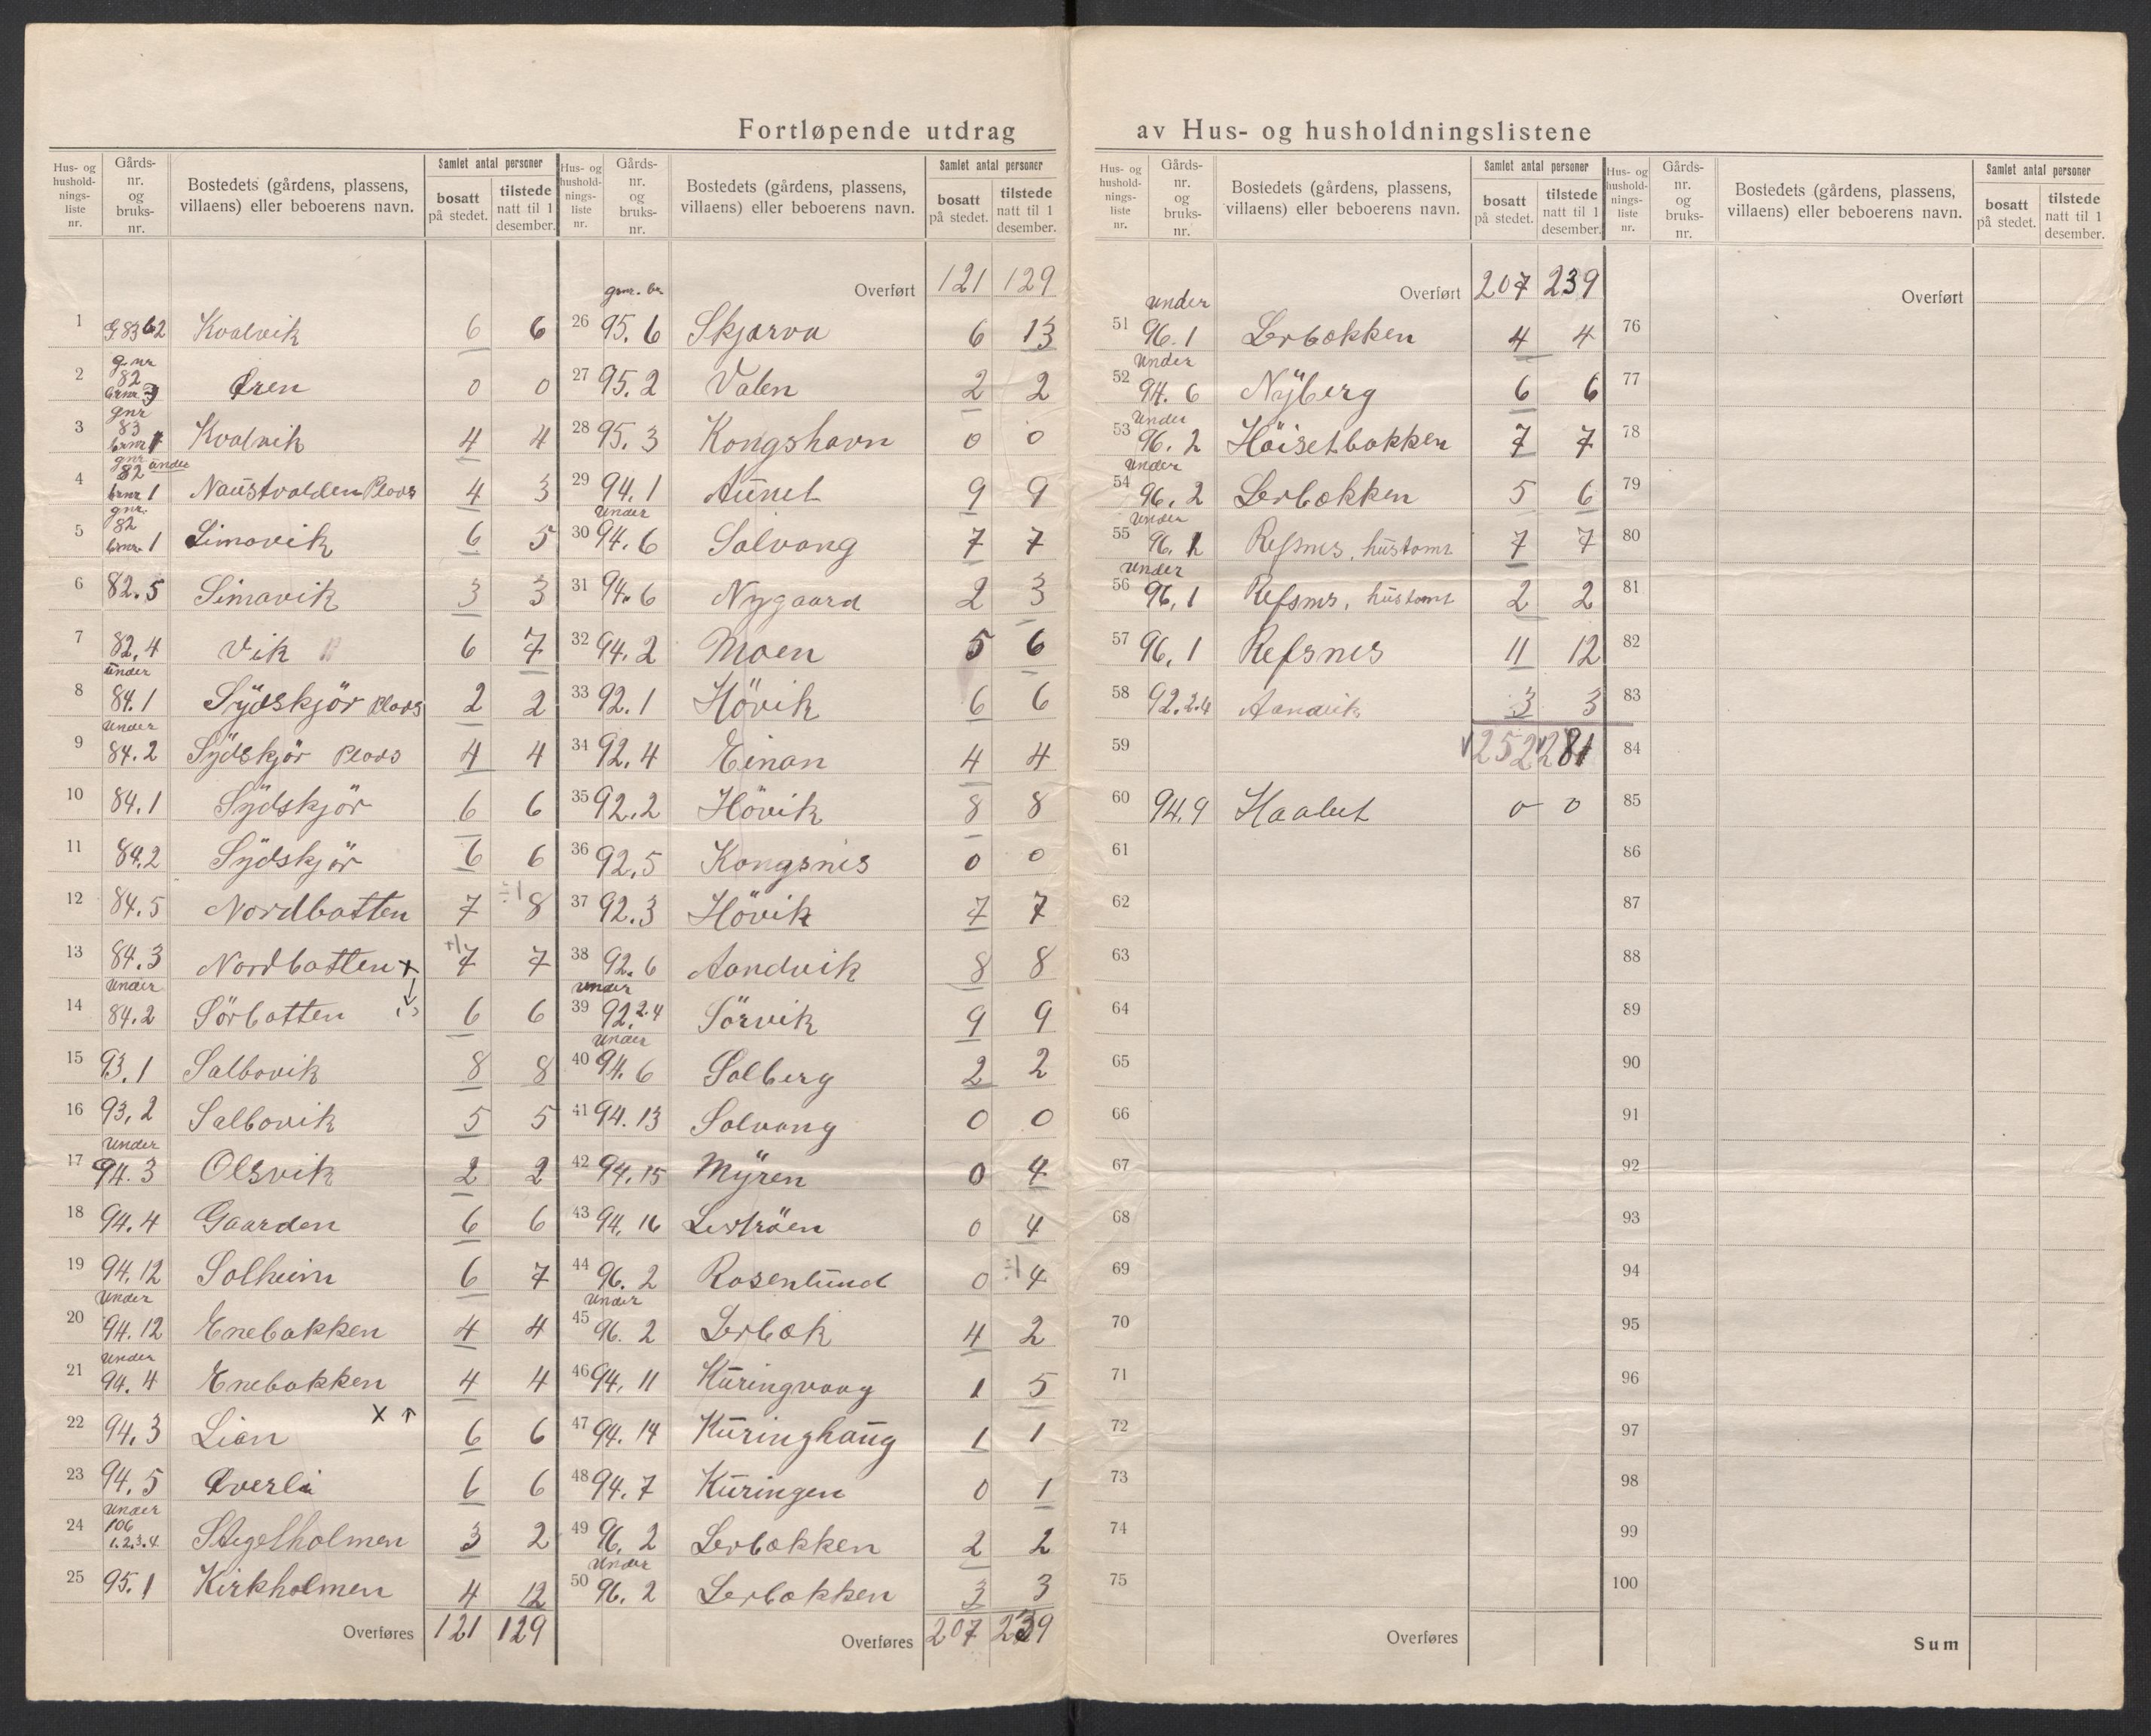 Fortløpende utdrag av Hus- og husholdningslistene
Hus- og husholdnings-liste nr. | Gårds-nr. og bruks-nr. | Bostedets (gårdens, plassens, villaens) eller beboerens navn. | Samlet antal personer | bosatt på stedet. | tilstede natt til 1 desember.
1 g 83 b 2 Kvalvik 6 6
2 gnr 82 brnr 3 Øren 0 0
3 gnr 83 brnr 1 Kvalvik 4 4
4 gnr 82 under brnr 1 Naustvolden Plads 4 3
5 gnr. 82 brnr. 1 Simavik 6 5
6 82.5 Simavik 3 3
7 82.4 Vik 6 7
8 under 84.1 Sydskjör Plads 2 2
9 Under 84.2 Sydskjör Plads 4 4
10 84.1 Sydskjör 6 6
11 84.2 Sydskjör 6 6
12 84.5 Nordbotten 7 ÷1 8
13 84.3 Nordbotten x +1 7 7
14 Under 84.2 Sörbotten 6 6
15 93.1 Salbovik 8 8
16 93.2 Salbovik 5 5
17 Under 94.3 Olsvik 2 2
18 94.4 Gaarden 6 6
19 94.12 Solheim 6 7
20 Under 94.12 Enebakken 4 4
21 Under 94.4 Enebakken 4 4
22 94.3 Lian x ↑ 6 6
23 94.5 Øverli 6 6
24 Under 106 1.2.3.4 Stegelholmen 3 2
25 95.1 Kirkholmen 4 12
Overføres 121 129
Hus- og husholdnings-liste nr. | Gårds-nr. og bruks-nr. | Bostedets (gårdens, plassens, villaens) eller beboerens navn. | Samlet antal personer | bosatt på stedet. | tilstede natt til 1 desember.
Overført 121 129
26 95.6 Skjærva 6 13
27 95.2 Valen 2 2
28 95.3 Kongshavn 0 0
29 94.1 Aunet 9 9
30 Under 94.6 Solvang 7 7
31 94.6 Nygaard 2 3
32 94.2 Moen 5 6
33 92.1 Hövik 6 6
34 92.4 Einan 4 4
35 92.2 Hövik 8 8
36 92.5 Kongsnes 0 0
37 92.3 Hövik 7 7
38 92.6 Aandvik 8 8
39 Under 92.2.4 Sörvik 9 9
40 Under 94.6 Solberg 2 2
41 94.13 Solvang 0 0
42 94.15 Myren 0 4
43 94.16 0 4
44 96.2 Rosenlund 0 ÷1 4
45 Under 96.2 Lerbæk 4 2
46 94.11 Kuringvaag 1 5
47 94.14 Kuringhaug 1 1
48 94.7 Kuringen 0 1
49 96.2 Lerbækken 2 2
50 Under 96.2 Lerbækken 3 3
Overføres 207 239
Hus- og husholdnings-liste nr. | Gårds-nr. og bruks-nr. | Bostedets (gårdens, plassens, villaens) eller beboerens navn. | Samlet antal personer | bosatt på stedet. | tilstede natt til 1 desember.
Overført 207 239
51 Under 96.1 Lerbækken 4 4
52 Under 94.6 Nyberg 6 6
53 Under 96.2 Höisetbakken 7 7
54 Under 96.2 Lerbækken 5 6
55 Under 96.1 Refsnes, hustomt 7 7
56 Under 96.1 Refsnes, hustomt 2 2
57 96.1 Refsnes 11 12
58 92.2.4 Aandvik 3 3
59 252 281
60 94.9 Haabet 0 0
61
62
63
64
65
66
67
68
69
70
71
72
73
74
75
Overføres
Hus- og husholdnings-liste nr. | Gårds-nr. og bruks-nr. | Bostedets (gårdens, plassens, villaens) eller beboerens navn. | Samlet antal personer | bosatt på stedet. | tilstede natt til 1 desember.
Overført
76
77
78
79
80
81
82
83
84
85
86
87
88
89
90
91
92
93
94
95
96
97
98
99
100
Sum